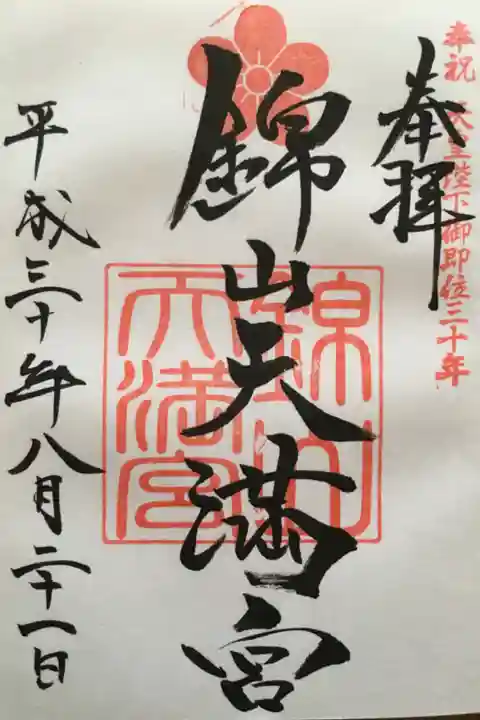 奉祝 天皇陛下御即位三十年
奉拝
錦山天満宮
錦山天満宮
平成三十年八月二十一日